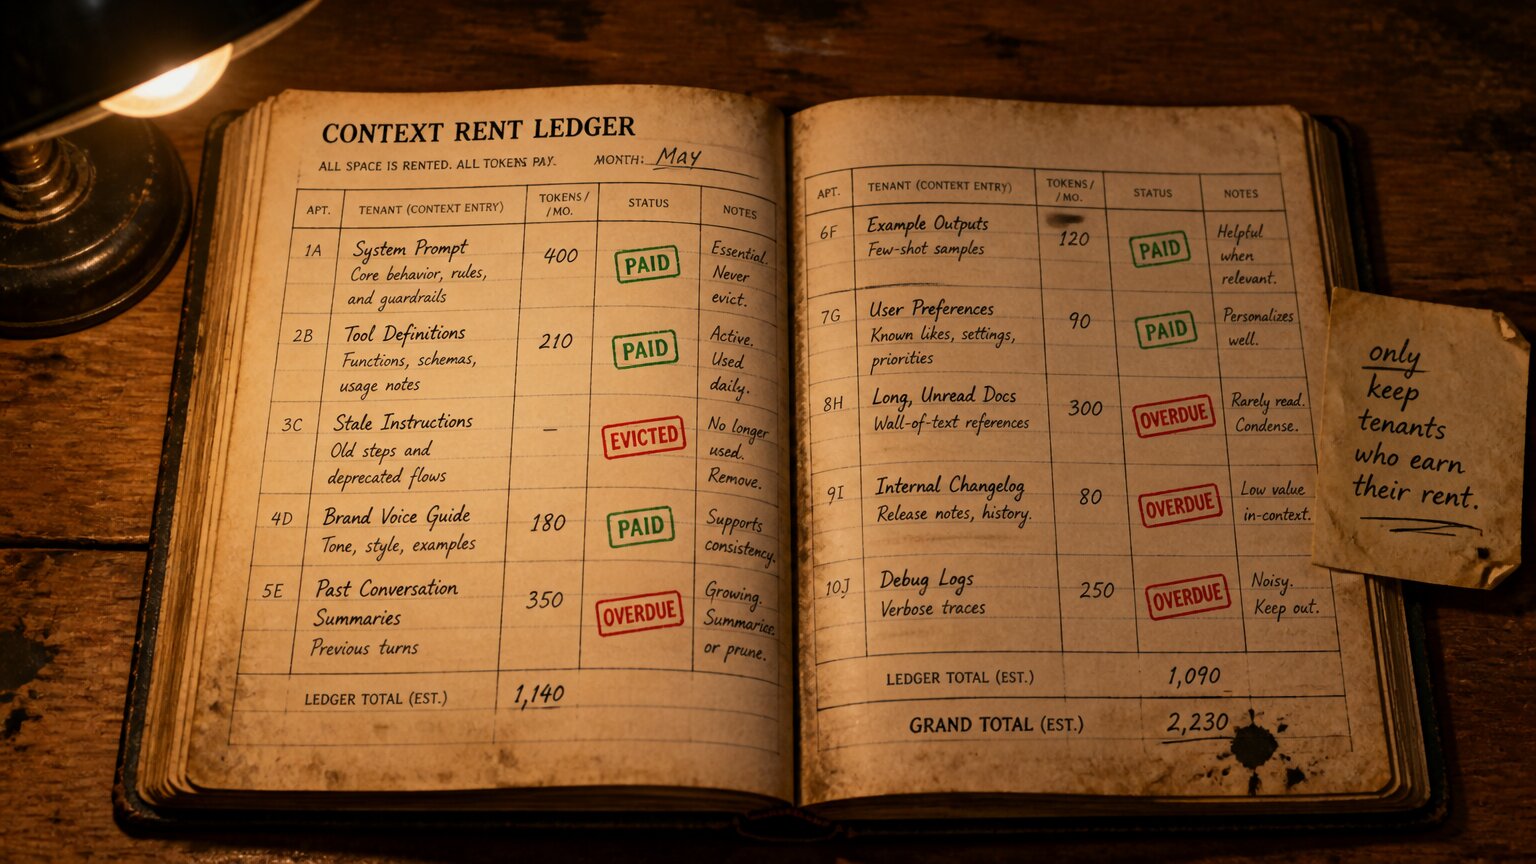 CONTEXT RENT LEDGER
ALL SPACE IS RENTED. ALL TOKENS PAY. MONTH: May
APT. TENANT (CONTEXT ENTRY) TOKENS / /MO. STATUS NOTES
1A System Prompt 400 PAID Essential.
Core behavior, rules, Never
and guardrails evict.
2B Tool Definitions 210 PAID Active.
Functions, schemas, Used
usage notes daily.
3C Stale Instructions — EVICTED No longer
Old steps and used.
deprecated flows Remove.
4D Brand Voice Guide 180 PAID Supports
Tone, style, examples consistency.
5E Past Conversation 350 OVERDUE Growing.
Summaries Summarize
Previous turns or prune.
LEDGER TOTAL (EST.) 1,140
APT. TENANT (CONTEXT ENTRY) TOKENS / /MO. STATUS NOTES
6F Example Outputs 120 PAID Helpful
Few-shot samples when
relevant.
7G User Preferences 90 PAID Personalizes
Known likes, settings, well.
priorities
8H Long, Unread Docs 300 OVERDUE Rarely read.
Wall-of-text references Condense.
9I Internal Changelog 80 OVERDUE Low value
Release notes, history. in-context.
10J Debug Logs 250 OVERDUE Noisy.
Verbose traces Keep out.
LEDGER TOTAL (EST.) 1,090
GRAND TOTAL (EST.) 2,230
only
keep
tenants
who earn
their rent.